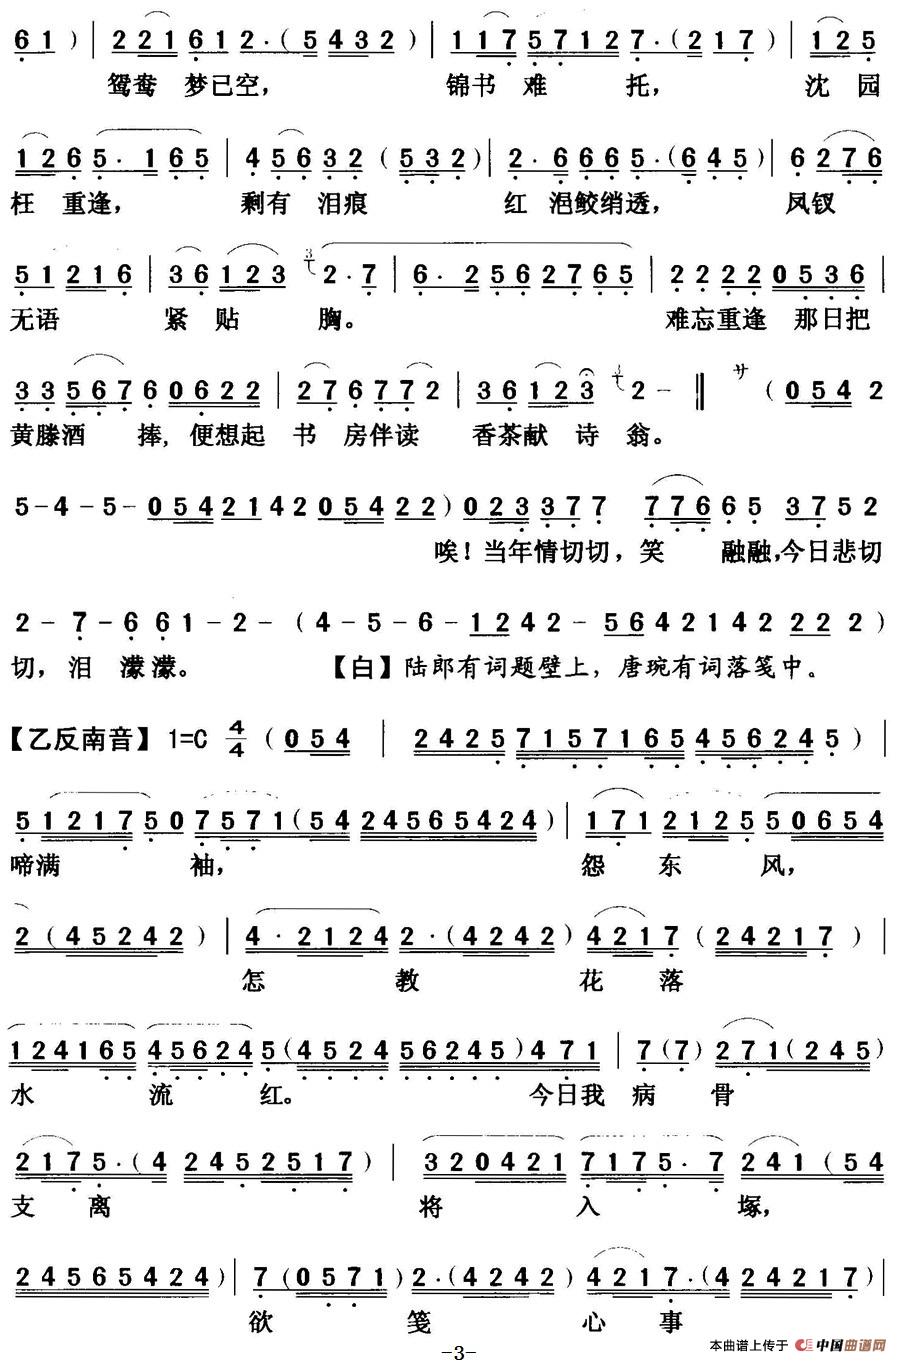 6 1 ) | 2 2 1 6 1 2 · ( 5 4 3 2 ) | 1 1 7 5 7 1 2 7 · ( 2 1 7 ) | 1 2 5
鸳鸯 梦已空， 锦书 难 托， 沈 园
1 2 6 5 · 1 6 5 | 4 5 6 3 2 ( 5 3 2 ) | 2 · 6 6 6 5 · ( 6 4 5 ) | 6 2 7 6
枉 重逢， 剩有 泪痕 红 浥鲛绡透， 凤钗
5 1 2 1 6 | 3 6 1 2 3 3 2 · 7 | 6 · 2 5 6 2 7 6 5 | 2 2 2 2 0 5 3 6 |
无语 紧 贴 胸。 难忘重逢 那日把
3 3 5 6 7 6 0 6 2 2 | 2 7 6 7 7 2 | 3 6 1 2 3 3 2 – ‖ サ ( 0 5 4 2
黄滕酒 捧, 便想起 书 房伴读 香茶献 诗 翁。
5 – 4 – 5 – 0 5 4 2 1 4 2 0 5 4 2 2 ) 0 2 3 3 7 7 7 7 6 6 5 3 7 5 2
唉！当年情切切，笑 融融，今日悲切
2 – 7 – 6 6 1 – 2 – ( 4 – 5 – 6 – 1 2 4 2 – 5 6 4 2 1 4 2 2 2 2 )
切，泪 濛濛。 【白】陆郎有词题壁上，唐琬有词落笺中。
【乙反南音】 1=C 4/4 ( 0 5 4 | 2 4 2 5 7 1 5 7 1 6 5 4 5 6 2 4 5 ) |
5 1 2 1 7 5 0 7 5 7 1 ( 5 4 2 4 5 6 5 4 2 4 ) | 1 7 1 2 1 2 5 5 0 6 5 4
啼满 袖， 怨 东 风，
2 ( 4 5 2 4 2 ) | 4 · 2 1 2 4 2 · ( 4 2 4 2 ) 4 2 1 7 ( 2 4 2 1 7 ) |
怎 教 花 落
1 2 4 1 6 5 4 5 6 2 4 5 ( 4 5 2 4 5 6 2 4 5 ) 4 7 1 | 7 ( 7 ) 2 7 1 ( 2 4 5 )
水 流 红。 今日我 病 骨
2 1 7 5 · ( 4 2 4 5 2 5 1 7 ) | 3 2 0 4 2 1 7 1 7 5 · 7 2 4 1 ( 5 4
支 离 将 入 塚，
2 4 5 6 5 4 2 4 ) | 7 ( 0 5 7 1 ) 2 · ( 4 2 4 2 ) 4 2 1 7 · ( 4 2 4 2 1 7 ) |
欲 笺 心 事
–3–
本曲谱上传于 中国曲谱网